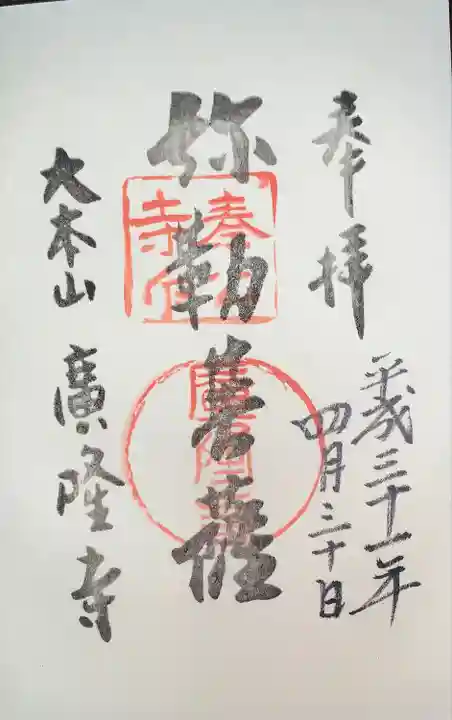 奉拝
平成三十一年
四月三十日
弥勒菩薩
大本山 廣隆寺